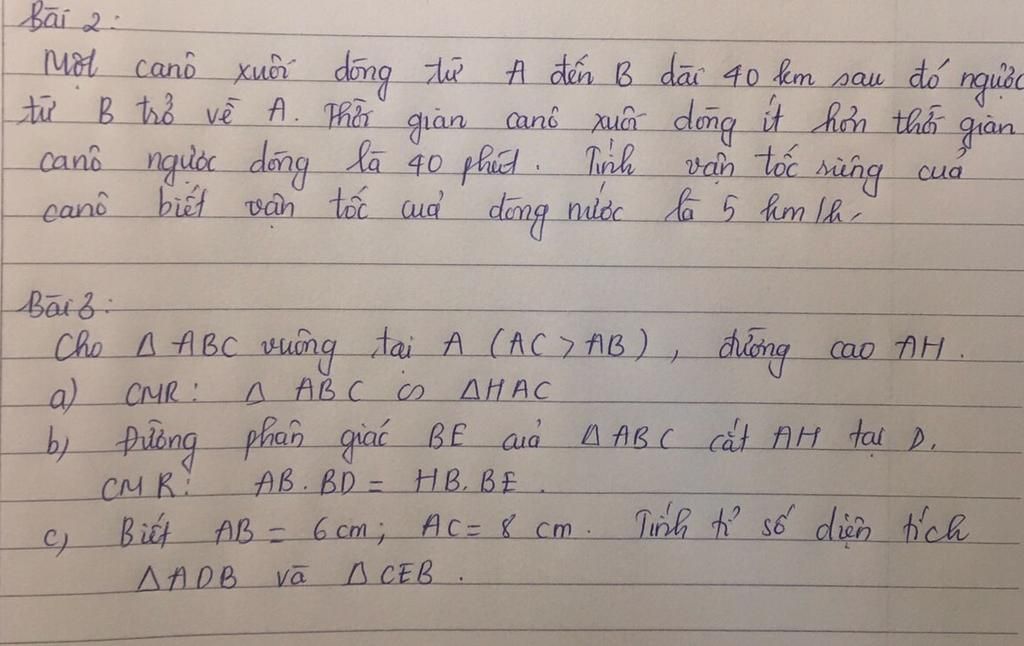 Bài 2:
Một canô xuôi dòng từ A đến B dài 40 km sau đó ngược
từ B trở về A. Thời gian canô xuôi dòng ít hơn thời gian
canô ngược dòng là 40 phút. Tính vận tốc riêng của
canô biết vận tốc của dòng nước là 5 km/h.
Bài 3:
Cho Δ ABC vuông tại A (AC > AB), đường cao AH.
a) CMR: Δ ABC ∽ ΔHAC
b) Đường phân giác BE của ΔABC cắt AH tại D.
CMR: AB.BD = HB.BE.
c) Biết AB = 6cm; AC = 8 cm. Tính tỉ số diện tích
ΔADB và ΔCEB.